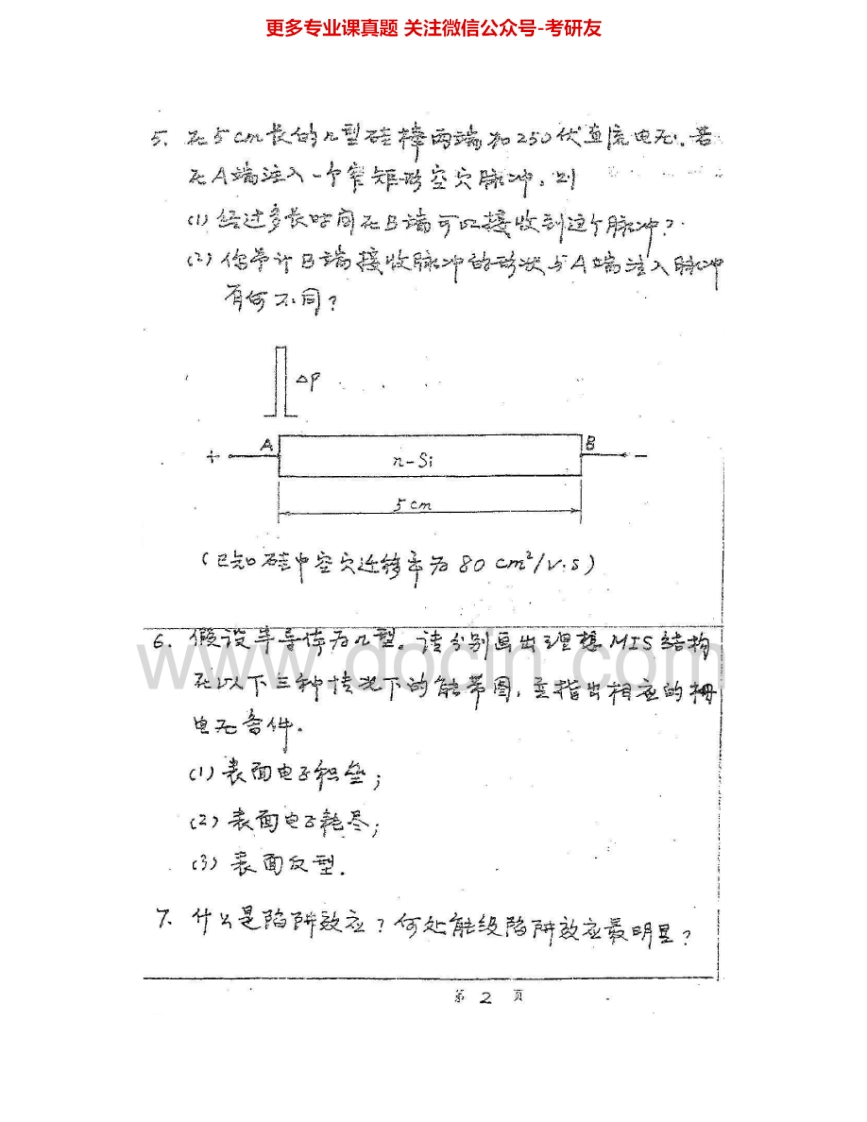 更多专业课真题 关注微信公众号-考研友
5. 在5cm长的n型硅棒两端加250伏直流电压. 若
在A端注入一个窄矩形空穴脉冲, 则
(1) 经过多长时间在B端可以接收到这个脉冲?
(2) 你估计B端接收脉冲的形状与A端注入脉冲
有何不同?
ΔP
A
B
+
n-Si
-
5cm
(已知硅中空穴迁移率为80 cm²/V·s)
6. 假设半导体为n型。请分别画出理想MIS结构
在以下三种情况下的能带图, 并指出相应的栅
电压条件.
(1) 表面电子积垒;
(2) 表面电子耗尽;
(3) 表面反型.
www.docin.com
7. 什么是陷阱效应? 何处能级陷阱效应最明显?
第 2 页